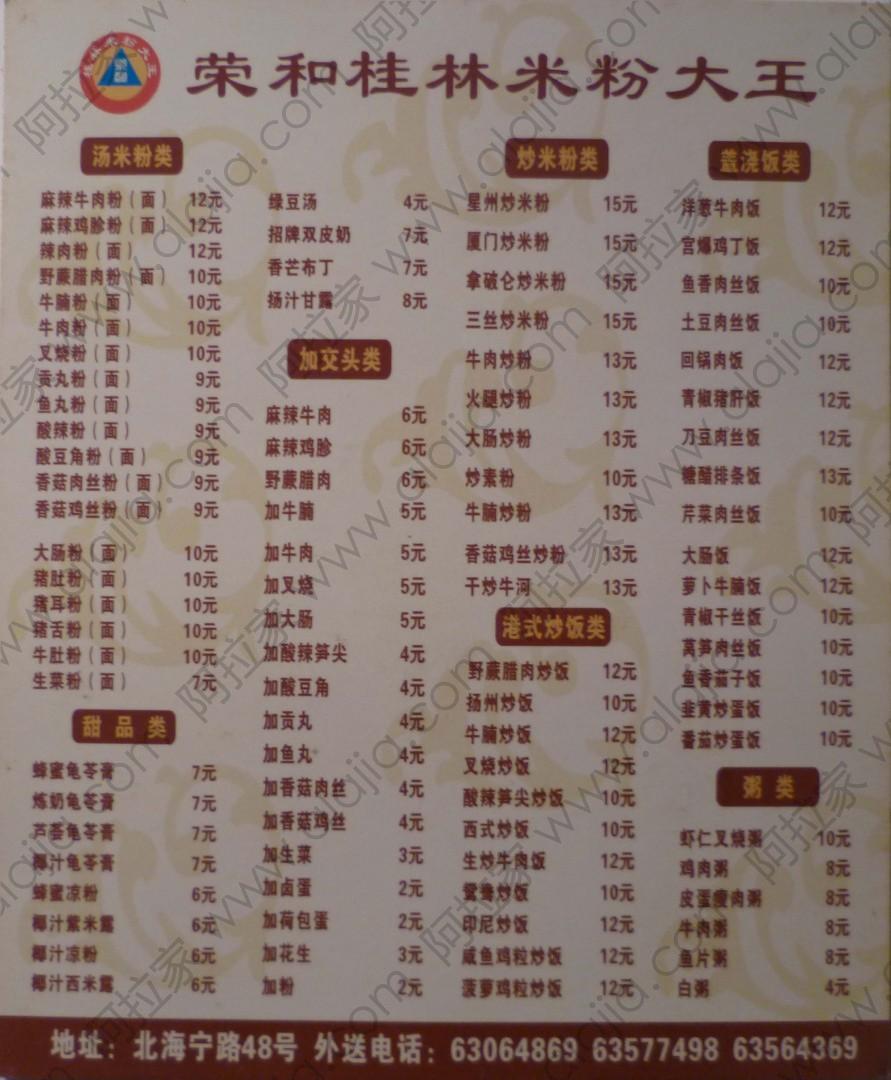 荣和桂林米粉大王
桂林米粉大王
汤米粉类
麻辣牛肉粉（面） 12元
麻辣鸡胗粉（面） 12元
辣肉粉（面） 12元
野蕨腊肉粉（面） 10元
牛腩粉（面） 10元
牛肉粉（面） 10元
叉烧粉（面） 10元
贡丸粉（面） 9元
鱼丸粉（面） 9元
酸辣粉（面） 9元
酸豆角粉（面） 9元
香菇肉丝粉（面） 9元
香菇鸡丝粉（面） 9元
大肠粉（面） 10元
猪肚粉（面） 10元
猪耳粉（面） 10元
猪舌粉（面） 10元
牛肚粉（面） 10元
生菜粉（面） 7元
甜品类
蜂蜜龟苓膏 7元
炼奶龟苓膏 7元
芦荟龟苓膏 7元
椰汁龟苓膏 7元
蜂蜜凉粉 6元
椰汁紫米露 6元
椰汁凉粉 6元
椰汁西米露 6元
绿豆汤 4元
招牌双皮奶 7元
香芒布丁 7元
扬汁甘露 8元
加交头类
麻辣牛肉 6元
麻辣鸡胗 6元
野蕨腊肉 6元
加牛腩 5元
加牛肉 5元
加叉烧 5元
加大肠 5元
加酸辣笋尖 4元
加酸豆角 4元
加贡丸 4元
加鱼丸 4元
加香菇肉丝 4元
加香菇鸡丝 4元
加生菜 3元
加卤蛋 2元
加荷包蛋 2元
加花生 3元
加粉 2元
炒米粉类
星州炒米粉 15元
厦门炒米粉 15元
拿破仑炒米粉 15元
三丝炒米粉 15元
牛肉炒粉 13元
火腿炒粉 13元
大肠炒粉 13元
炒素粉 10元
牛腩炒粉 13元
香菇鸡丝炒粉 13元
干炒牛河 13元
港式炒饭类
野蕨腊肉炒饭 12元
扬州炒饭 10元
牛腩炒饭 12元
叉烧炒饭 12元
酸辣笋尖炒饭 10元
西式炒饭 10元
生炒牛肉饭 12元
鸳鸯炒饭 10元
印尼炒饭 12元
咸鱼鸡粒炒饭 12元
菠萝鸡粒炒饭 12元
盖浇饭类
洋葱牛肉饭 12元
宫爆鸡丁饭 12元
鱼香肉丝饭 10元
土豆肉丝饭 10元
回锅肉饭 12元
青椒猪肝饭 12元
刀豆肉丝饭 12元
糖醋排条饭 13元
芹菜肉丝饭 10元
大肠饭 12元
萝卜牛腩饭 12元
青椒干丝饭 10元
莴笋肉丝饭 10元
鱼香茄子饭 10元
韭黄炒蛋饭 10元
番茄炒蛋饭 10元
粥类
虾仁叉烧粥 10元
鸡肉粥 8元
皮蛋瘦肉粥 8元
牛肉粥 8元
鱼片粥 8元
白粥 4元
地址：北海宁路48号 外送电话：63064869 63577498 63564369
阿拉家 www.alajia.com